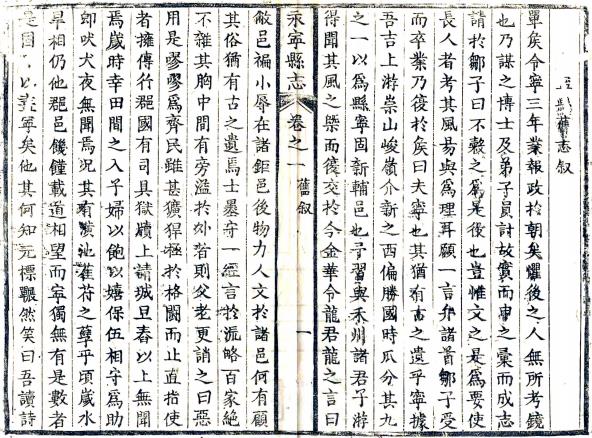 志叙
單矣令寧三年業報政於朝矣懼後之人無所考鏡
也乃謀之博士及弟子員討故實而事之稾而成志
請於鄒子曰不穀之爲是役也豈惟文之是爲要使
長人者考其風易與爲理耳願一言弁諸首鄒子受
而卒業乃復於矦曰夫寧也其猶有古之遺乎寧據
吾吉上游崇山峻嶺介新之西偏勝國時瓜分其九
之一以爲縣寧固新輔邑也予習與禾州諸君子游
得聞其風之槩而獲交於今金華令龍君龍之言曰
永寧縣志 卷之一 舊叙 一
敝邑褊小辱在諸鉅邑後物力人文於諸邑何有顧
其俗猶有古之遺焉士墨守一經言於流略百家絶
不雜其胸中間有旁溢於外者則父老更誚之曰惡
用是嘐嘐爲齊民雖甚獷猂極於格鬭而止直指使
者擁傳行郡國有司具獄牘上請城旦舂以上無聞
焉歲時幸田間之入子婦以飽以嬉保伍相守爲助
卽吠犬夜無聞焉况其有潢池萑苻之孽乎頃歲水
旱相仍他郡邑饑饉載道相望而寧獨無有是數者
是固以寧矣他其何知元標囅然笑曰吾讀詩